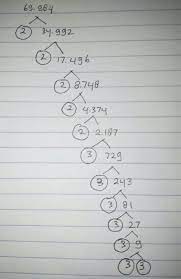 69.984
2 34.992
2 17.496
2 8.748
2 4.374
2 2.187
3 729
3 243
3 81
3 27
3 9
3 3